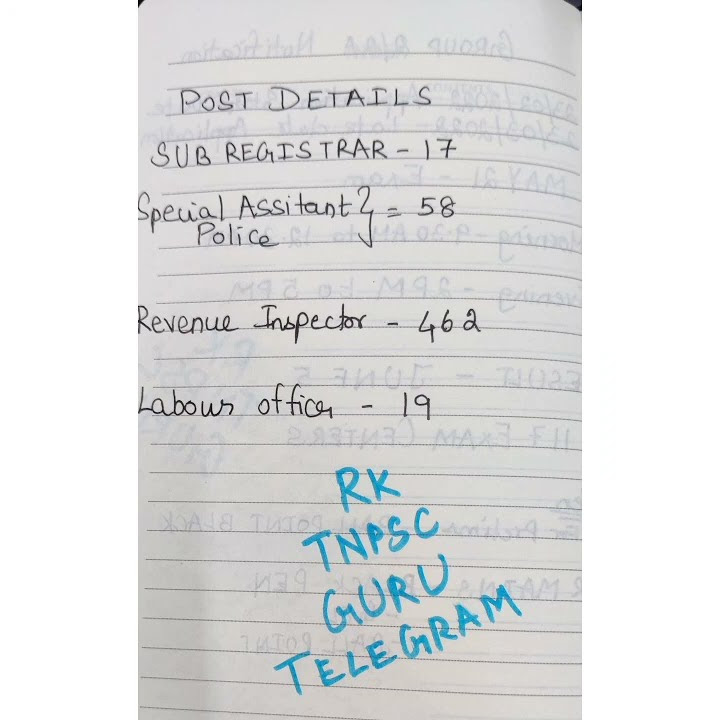 POST DETAILS
SUB REGISTRAR - 17
Special Assitant } = 58
Police
Revenue Inspector - 462
Labour officer - 19
RK
TNPSC
GURU
TELEGRAM